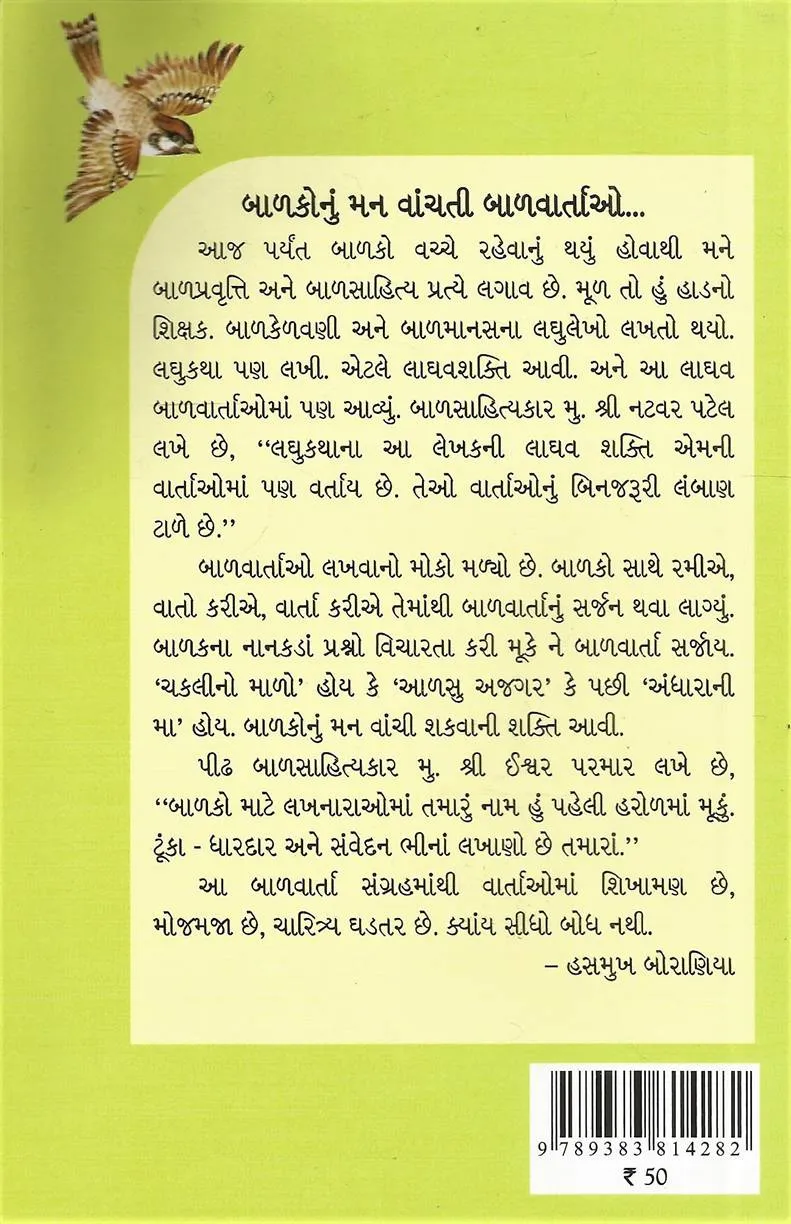 બાળકોનું મન વાંચતી બાળવાર્તાઓ...
આજ પર્યંત બાળકો વચ્ચે રહેવાનું થયું હોવાથી મને
બાળપ્રવૃત્તિ અને બાળસાહિત્ય પ્રત્યે લગાવ છે. મૂળ તો હું હાડનો
શિક્ષક. બાળકેળવણી અને બાળમાનસના લઘુલેખો લખતો થયો.
લઘુકથા પણ લખી. એટલે લાઘવશક્તિ આવી. અને આ લાઘવ
બાળવાર્તાઓમાં પણ આવ્યું. બાળસાહિત્યકાર મુ. શ્રી નટવર પટેલ
લખે છે, “લઘુકથાના આ લેખકની લાઘવ શક્તિ એમની
વાર્તાઓમાં પણ વર્તાય છે. તેઓ વાર્તાઓનું બિનજરૂરી લંબાણ
ટાળે છે.”
બાળવાર્તાઓ લખવાનો મોકો મળ્યો છે. બાળકો સાથે રમીએ,
વાતો કરીએ, વાર્તા કરીએ તેમાંથી બાળવાર્તાનું સર્જન થવા લાગ્યું.
બાળકના નાનકડાં પ્રશ્નો વિચારતા કરી મૂકે ને બાળવાર્તા સર્જાય.
‘ચકલીનો માળો’ હોય કે ‘આળસુ અજગર’ કે પછી ‘અંધારાની
મા’ હોય. બાળકોનું મન વાંચી શકવાની શક્તિ આવી.
પીઢ બાળસાહિત્યકાર મુ. શ્રી ઈશ્વર પરમાર લખે છે,
“બાળકો માટે લખનારાઓમાં તમારું નામ હું પહેલી હરોળમાં મૂકું.
ટૂંકા - ધારદાર અને સંવેદન ભીનાં લખાણો છે તમારાં.”
આ બાળવાર્તા સંગ્રહમાંથી વાર્તાઓમાં શિખામણ છે,
મોજમજા છે, ચારિત્ર્ય ઘડતર છે. ક્યાંય સીધો બોધ નથી.
– હસમુખ બોરાણિયા
9 789383 814282
₹ 50